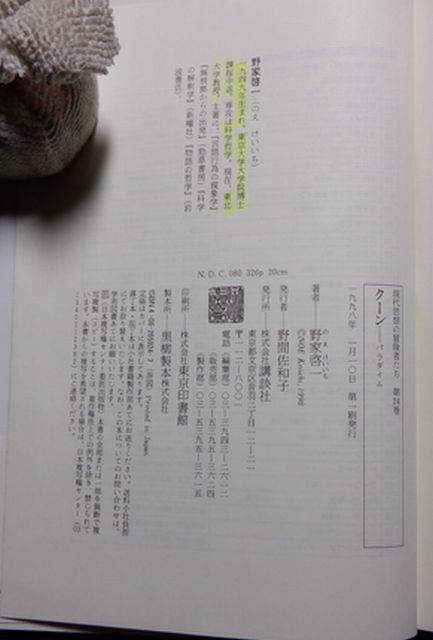 野家啓一（のえ けいいち）
一九四九年生まれ。東京大学大学院博士
課程中退。専攻は科学哲学。現在、東北
大学教授。主著に、『言語行為の現象学』
『無根拠からの出発』（勁草書房）『科学
の解釈学』（新曜社）『物語の哲学』（岩
波書店）。
N.D.C. 080 326p 20cm
現代思想の冒険者たち 第24巻
クーン――パラダイム
一九九八年 一月一〇日 第一刷発行
著者――野家啓一
のえ けいいち
©NOE Keiichi, 1998
発行者――野間佐和子
発行所――株式会社講談社
東京都文京区音羽二丁目一二―二一
〒一一二―八〇〇一
電話（編集部）〇三―三九四三―二六一二
（販売部）〇三―五三九五―三六二四
（製作部）〇三―五三九五―三六一五
印刷所――株式会社東京印書館
製本所――黒柳製本株式会社
Printed in Japan
定価はカバーに表示してあります。
落丁本・乱丁本は小社書籍製作部あてにお送りください。送料小社負担
にてお取り替えいたします。なお、この本についてのお問い合わせは、
学術図書あてにお願いいたします。
図〈日本複写権センター委託出版物〉本書の全部または一部を無断で複
写複製（コピー）することは、著作権法上での例外を除き、禁じられて
います。本書からの複写を希望される場合は、日本複写権センター（03
に ご連絡ください。